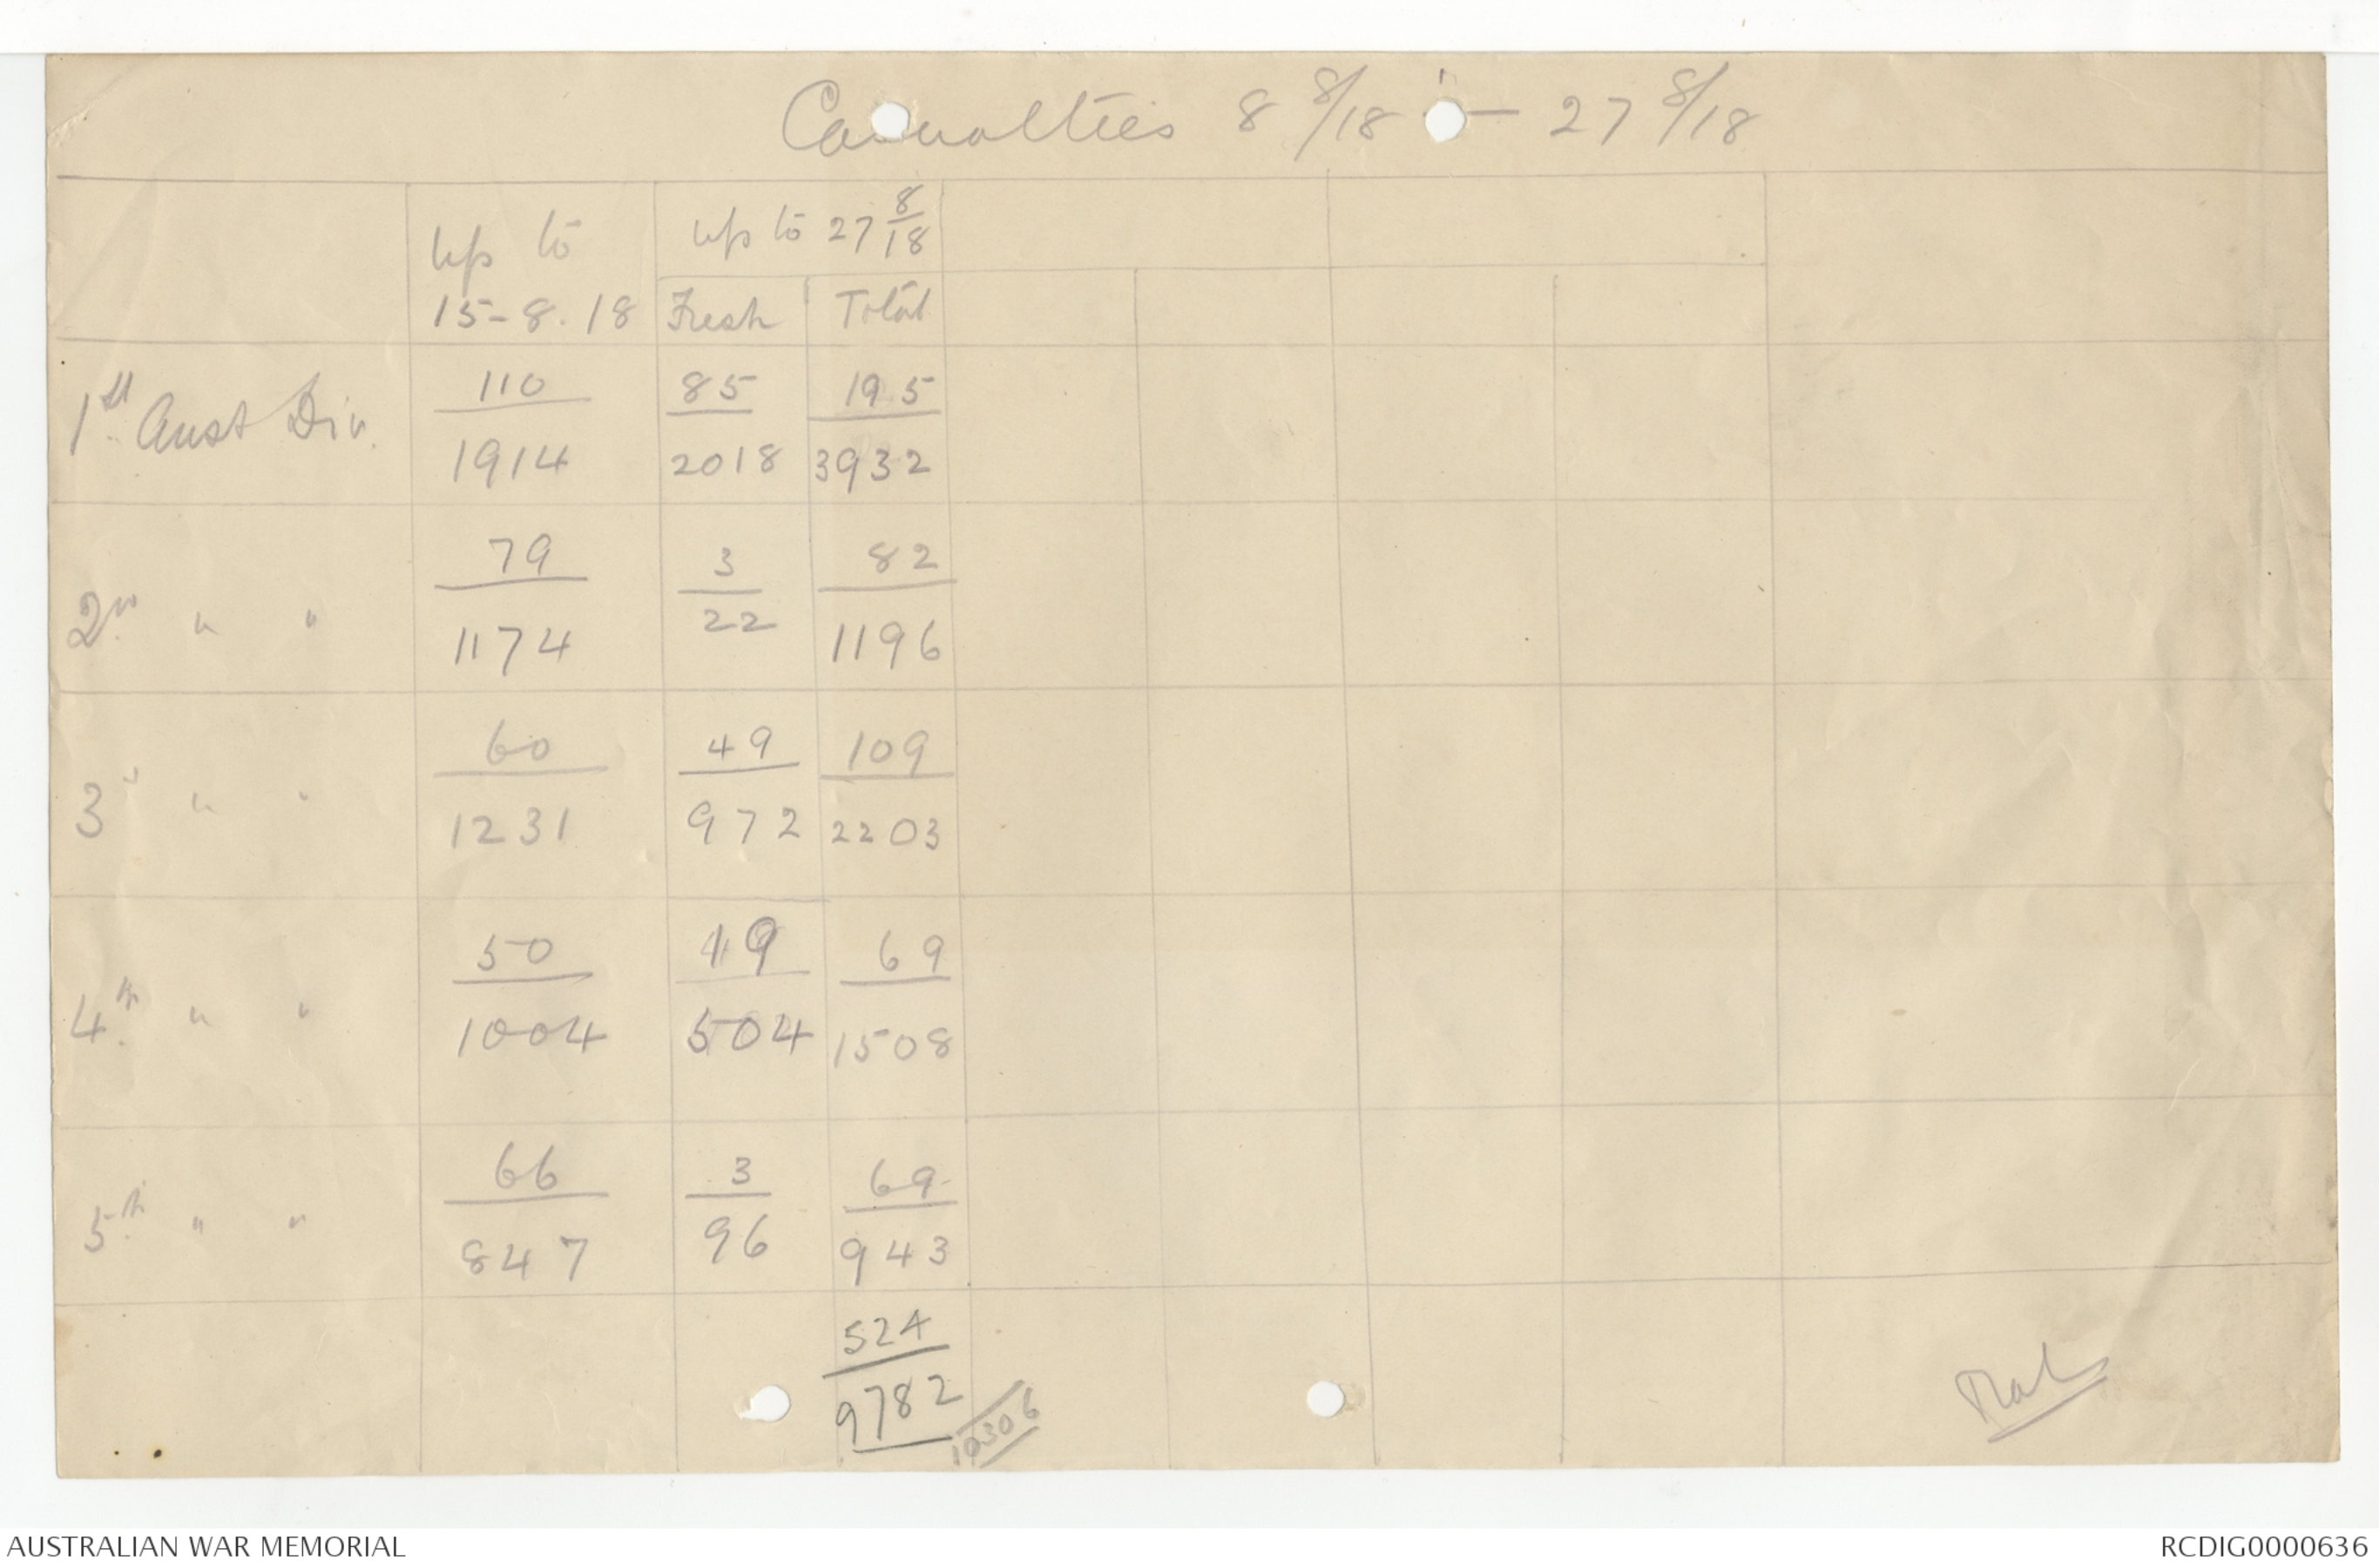 Casualties 8 8/18 — 27 8/18
Up to 15-8.18 up to 27 8/18
Fresh Total
1st Aust Div. 110/1914 85/2018 195/3932
2nd " " 79/1174 3/22 82/1196
3d " " 60/1231 49/972 109/2203
4th " " 50/1004 19/504 69/1508
5th " " 66/847 3/96 69/943
524/9782
10306
AUSTRALIAN WAR MEMORIAL
RCDIG0000636